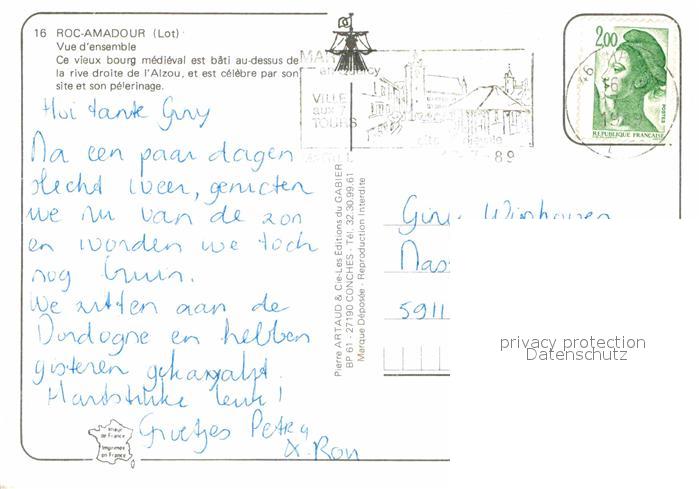 16 ROC-AMADOUR (Lot)
Vue d'ensemble
Ce vieux bourg médiéval est bâti au-dessus de
la rive droite de l'Alzou, et est célèbre par son
site et son pélerinage.
VILLE
aux 7
TOURS
89
2,00
POSTES
REPUBLIQUE FRANÇAISE
Hoi tante Guny
Na een paar dagen
slecht weer, genieten
we nu van de zon
en worden we toch
nog bruin.
We zitten aan de
Dordogne en hebben
gisteren gekanoed.
Hartstikke leuk!
Groetjes Petra
& Ron
Pierre ARTAUD & Cie-Les Éditions du GABIER
BP 61 - 27190 CONCHES - Tél. 32.30.99.61
Marque Déposée - Reproduction Interdite
5911
privacy protection
Datenschutz
Imprimée
en France